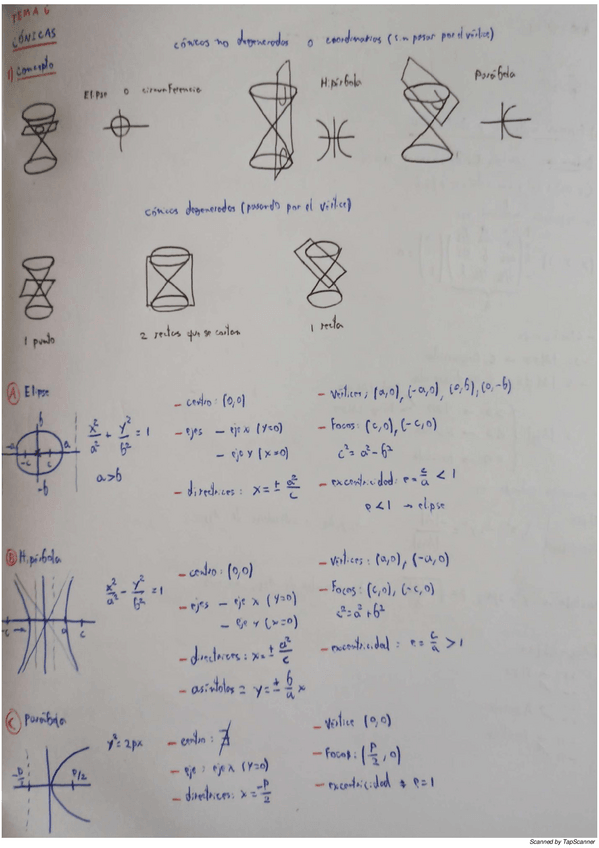 TEMA 6
CÓNICAS
cónicas no degeneradas o coordinarias (sin pasar por el vértice)
1) Concepto
Elipse o circunferencia
Hipérbola
Parábola
cónicas degeneradas (pasando por el vértice)
1 punto
2 rectas que se cortan
1 recta
A Elipse
b
-a
a
-c
c
-b
x²/a² + y²/b² = 1
a>b
- centro: (0,0)
- ejes - eje x (y=0)
- eje y (x=0)
- directrices: x = ± a²/c
- vértices: (a,0), (-a,0), (0,b), (0,-b)
- Focos: (c,0), (-c,0)
c² = a² - b²
- excentricidad: e = c/a < 1
e < 1 → elipse
B Hipérbola
-c
a
c
x²/a² - y²/b² = 1
- centro: (0,0)
- ejes - eje x (y=0)
- eje y (x=0)
- directrices: x = ± a²/c
- asíntotas = y = ± b/a x
- vértices: (a,0), (-a,0)
- Focos: (c,0), (-c,0)
c² = a² + b²
- excentricidad: e = c/a > 1
C Parábola
-p/2
p/2
y² = 2px
- centro: ∄
- eje: eje x (y=0)
- directrices: x = -p/2
- vértice (0,0)
- Focos: (p/2, 0)
- excentricidad e=1
Scanned by TapScanner